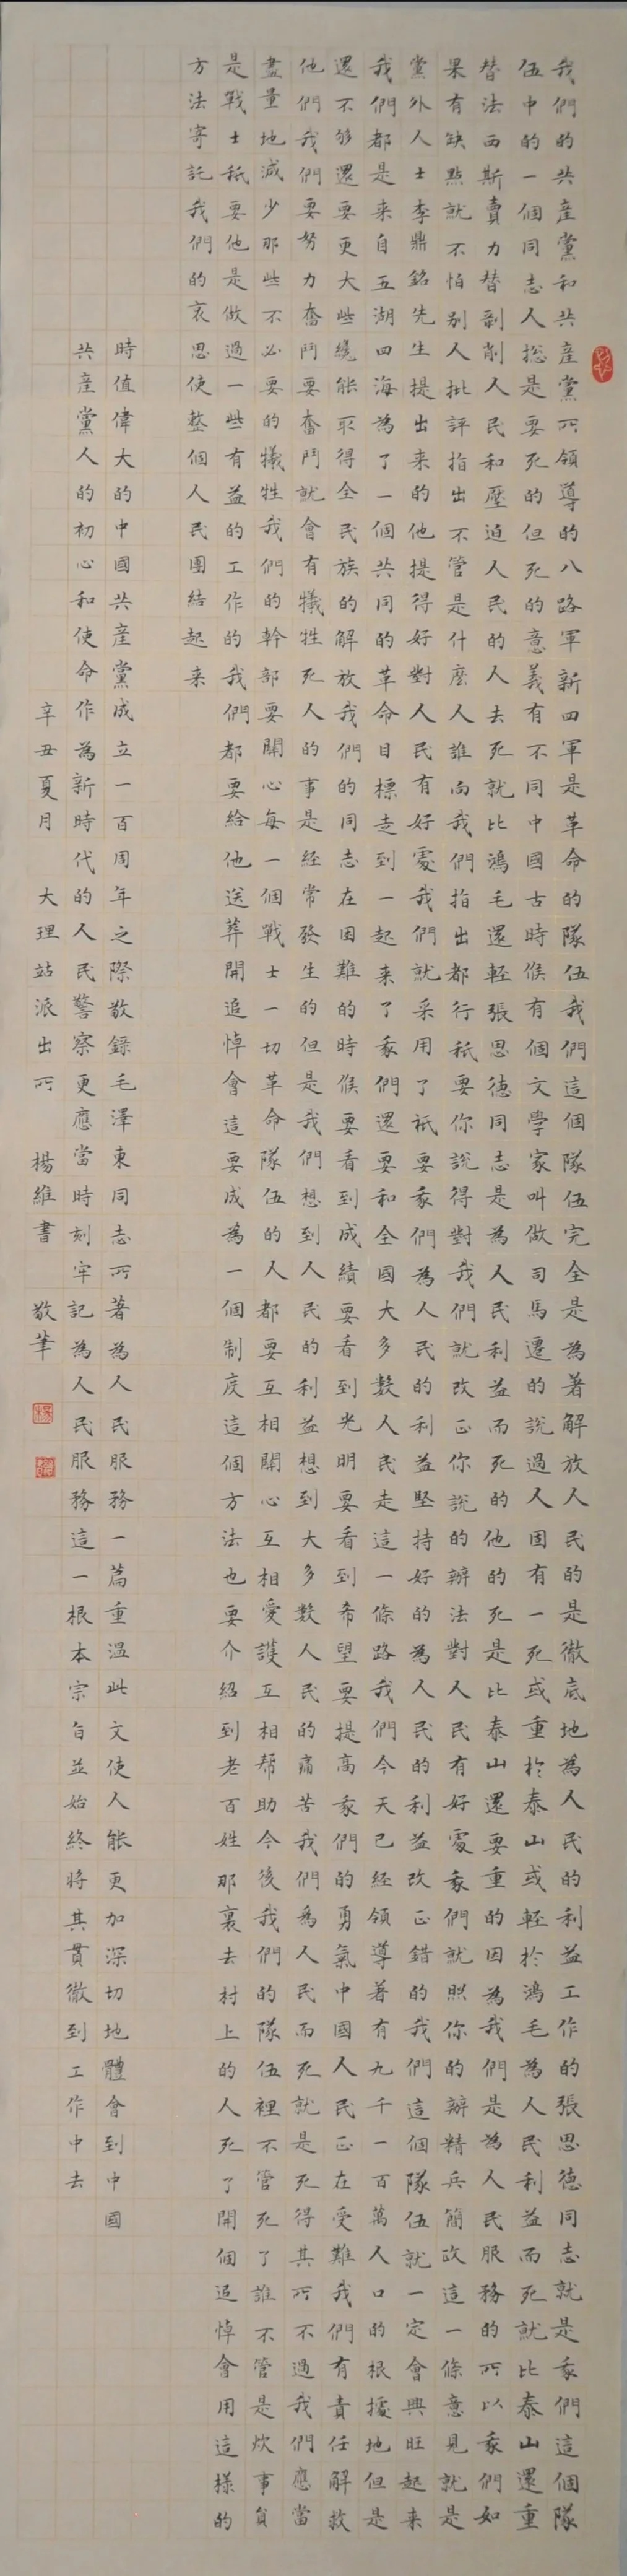 我們的共産黨和共産黨所領導的八路軍新四軍是革命的隊伍我們這個隊伍完全是為著解放人民的是徹底地為人民的利益工作的張思德同志就是我們這個隊
伍中的一個同志人總是要死的但死的意義有不同中國古時候有個文學家叫做司馬遷的說過人固有一死或重於泰山或輕於鴻毛為人民利益而死就比泰山還重
替法西斯賣力替剝削人民和壓迫人民的人去死就比鴻毛還輕張思德同志是為人民利益而死的他的死是比泰山還要重的因為我們是為人民服務的所以我們如
果有缺點就不怕别人批評指出不管是什麼人誰向我們指出都行祇要你說得對我們就改正你說的辦法對人民有好處我們就照你的辦精兵簡政這一條意見就是
黨外人士李鼎銘先生提出来的他提得好對人民有好處我們就采用了祇要我們為人民的利益堅持好的為人民的利益改正錯的我們這個隊伍就一定會興旺起来
我們都是来自五湖四海為了一個共同的革命目標走到一起来了我們還要和全國大多數人民走這一條路我們今天已經領導著有九千一百萬人口的根據地但是
還不够還要更大些纔能取得全民族的解放我們的同志在困難的時候要看到成績要看到光明要看到希望要提高我們的勇氣中國人民正在受難我們有責任解救
他們我們要努力奮鬥要奮鬥就會有犧牲死人的事是經常發生的但是我們想到人民的利益想到大多數人民的痛苦我們為人民而死就是死得其所不過我們應當
盡量地減少那些不必要的犧牲我們的幹部要關心每一個戰士一切革命隊伍的人都要互相關心互相愛護互相幫助今後我們的隊伍裡不管死了誰不管是炊事員
是戰士祇要他是做過一些有益的工作的我們都要給他送葬開追悼會這要成為一個制度這個方法也要介紹到老百姓那裏去村上的人死了開個追悼會用這樣的
方法寄託我們的哀思使整個人民團結起来
時值偉大的中國共産黨成立一百周年之際敬錄毛澤東同志所著為人民服務一篇重温此文使人能更加深切地體會到中國
共産黨人的初心和使命作為新時代的人民警察更應當時刻牢記為人民服務這一根本宗旨並始終將其貫徹到工作中去
辛丑夏月 大理站派出所 楊維書 敬筆